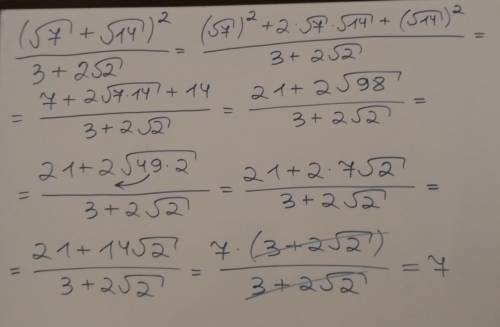 (√7 + √14)² / (3 + 2√2) = ((√7)² + 2·√7·√14 + (√14)²) / (3 + 2√2) =
= (7 + 2√(7·14) + 14) / (3 + 2√2) = (21 + 2√98) / (3 + 2√2) =
= (21 + 2√(49·2)) / (3 + 2√2) = (21 + 2·7√2) / (3 + 2√2) =
= (21 + 14√2) / (3 + 2√2) = 7·(3 + 2√2) / (3 + 2√2) = 7